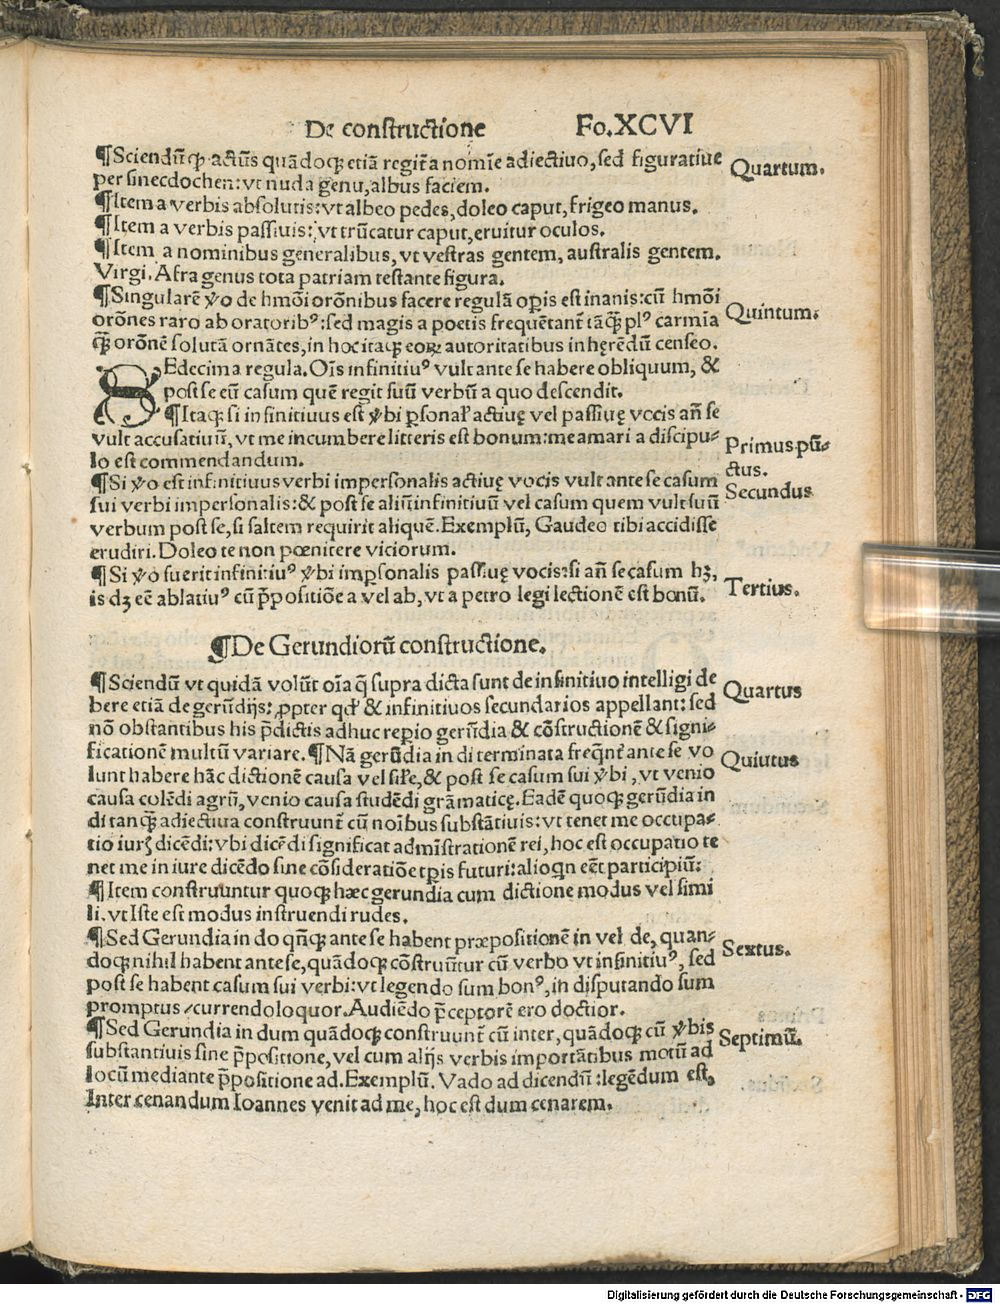 De constructione Fo.XCVI
¶Sciendūꝙ actiūs quādoq; etiā regit᷑ a nomīe adiectiuo, sed figuratiue
Quartum.
per sinecdochen: vt nuda genu, albus faciem.
¶Item a verbis absolutis: vt albeo pedes, doleo caput, frigeo manus.
¶Item a verbis passiuis: vt trūcatur caput, eruitur oculos.
¶Item a nominibus generalibus, vt vestras gentem, australis gentem.
Virgi. Afra genus tota patriam testante figura.
¶Singularē ꝟo de hmōi orōnibus facere regulā oꝑis est inanis: cū hmōi
Quintum.
orōnes raro ab oratoribꝰ: sed magis a poetis frequētant᷑ tāꝙ̄ plꝰ carmīa
ꝙ̄ orōnē solutā ornātes, in hoc itaq; eoꝝ autoritatibus inhęrēdū censeo.
SEdecima regula. Oīs infinitiuꝰ vult ante se habere obliquum, &
post se eū casum quē regit suū verbū a quo descendit.
¶Itaq; si infinitiuus est ꝟbi ꝑsonal' actiuę vel passiuę vocis añ se
vult accusatiuū, vt me incumbere litteris est bonum: me amari a discipu⸗
Primus pū⸗
lo est commendandum.
ctus.
¶Si ꝟo est infinitiuus verbi impersonalis actiuę vocis vult ante se casum
Secundus
sui verbi impersonalis: & post se aliū infinitiuū vel casum quem vult suū
verbum post se, si saltem requirit aliquē. Exemplū, Gaudeo tibi accidisse
erudiri. Doleo te non pœnitere viciorum.
¶Si ꝟo fuerit infinitiuꝰ ꝟbi imꝑsonalis passiuę vocis: si añ se casum hꝫ,
Tertius.
is dꝫ eē ablatiuꝰ cū p̄positiōe a vel ab, vt a petro legi lectionē est bonū.
¶De Gerundiorū constructione.
¶Sciendū vt quidā volūt oīa q̄ supra dicta sunt de infinitiuo intelligi de
Quartus
bere etiā de gerūdijs: ꝓpter qđ & infinitiuos secundarios appellant: sed
nō obstantibus his p̄dictis adhuc reꝑio gerūdia & cōstructionē & signi⸗
ficationē multū variare. ¶Nā gerūdia in di terminata freq̄nt᷑ ante se vo
Quiutus
lunt habere hāc dictionē causa vel sil'e, & post se casum sui ꝟbi, vt venio
causa colēdi agrū, venio causa studēdi grāmaticę. Eadē quoq; gerūdia in
di tanꝙ̄ adiectiua construunt᷑ cū noībus substātiuis: vt tenet me occupa⸗
tio iurꝭ dicēdi: vbi dicēdi significat admīstrationē rei, hoc est occupatio te
net me in iure dicēdo sine cōsideratiōe tꝑis futuri: alioqn eēt participiū:
¶Item construuntur quoq; hæc gerundia cum dictione modus vel simi
li. vt Iste est modus instruendi rudes.
¶Sed Gerundia in do qñq; ante se habent præpositionē in vel de, quan⸗
Sextus.
doq; nihil habent ante se, quādoq; cōstruūtur cū verbo vt infinitiuꝰ, sed
post se habent casum sui verbi: vt legendo sum bonꝰ, in disputando sum
promptus/currendo loquor. Audiēdo p̄ceptorē ero doctior.
¶Sed Gerundia in dum quādoq; construunt᷑ cū inter, quādoq; cū ꝟbis
Septimū.
substantiuis sine p̄positione, vel cum alijs verbis importātibus motū ad
locū mediante p̄positione ad. Exemplū. Vado ad dicendū: legēdum est,
Inter cenandum Ioannes venit ad me, hoc est dum cenarem.
Digitalisierung gefördert durch die Deutsche Forschungsgemeinschaft - DFG